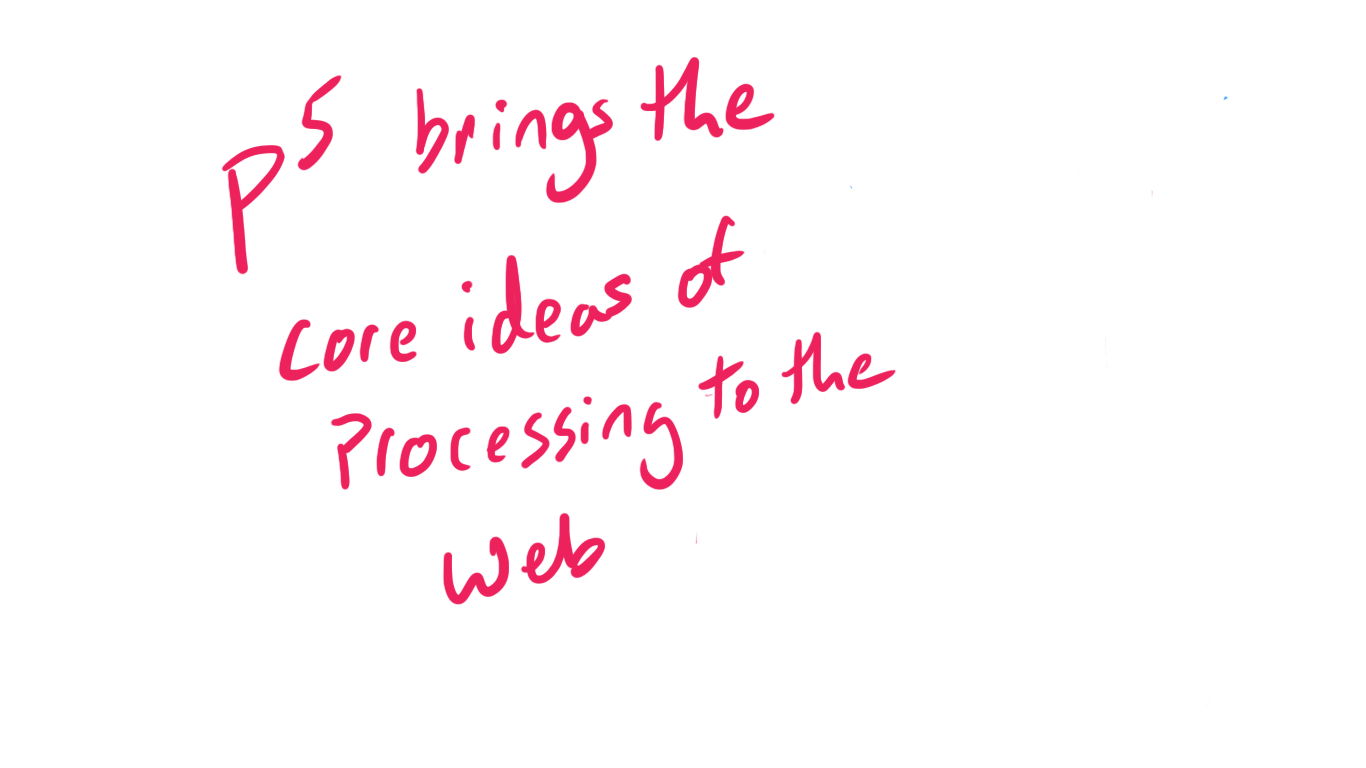 P⁵ brings the
core ideas of
Processing to the
web